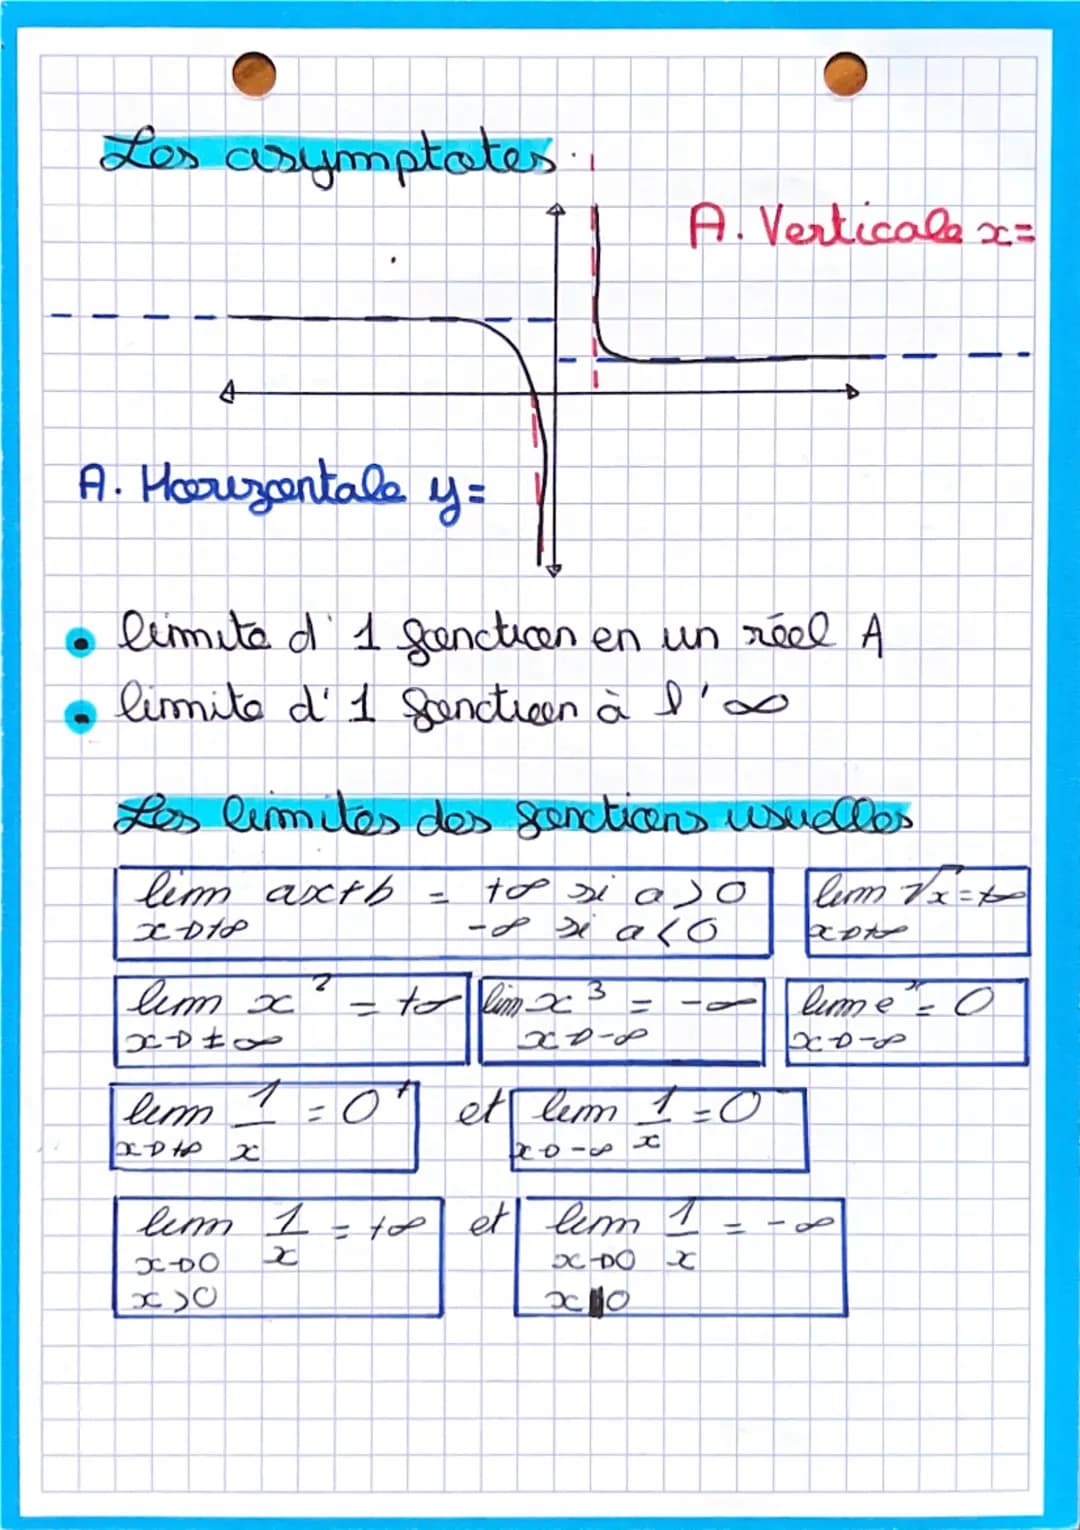 Les asymptotes.
A. Verticale x=
A. Horizontale y=
limite d'1 fonction en un réel A
limite d'1 fonction à l'∞
Les limites des fonctions usuelles
lim ax+b = +∞ si a>0
x→+∞ -∞ si a<0
lim √x = +∞
x→+∞
lim x² = +∞
x→±∞
lim x³ = -∞
x→-∞
lim eˣ = 0
x→-∞
lim 1/x = 0⁺
x→+∞
et lim 1/x = 0
x→-∞
lim 1/x = +∞
x→0
x>0
et lim 1/x = -∞
x→0
x 0